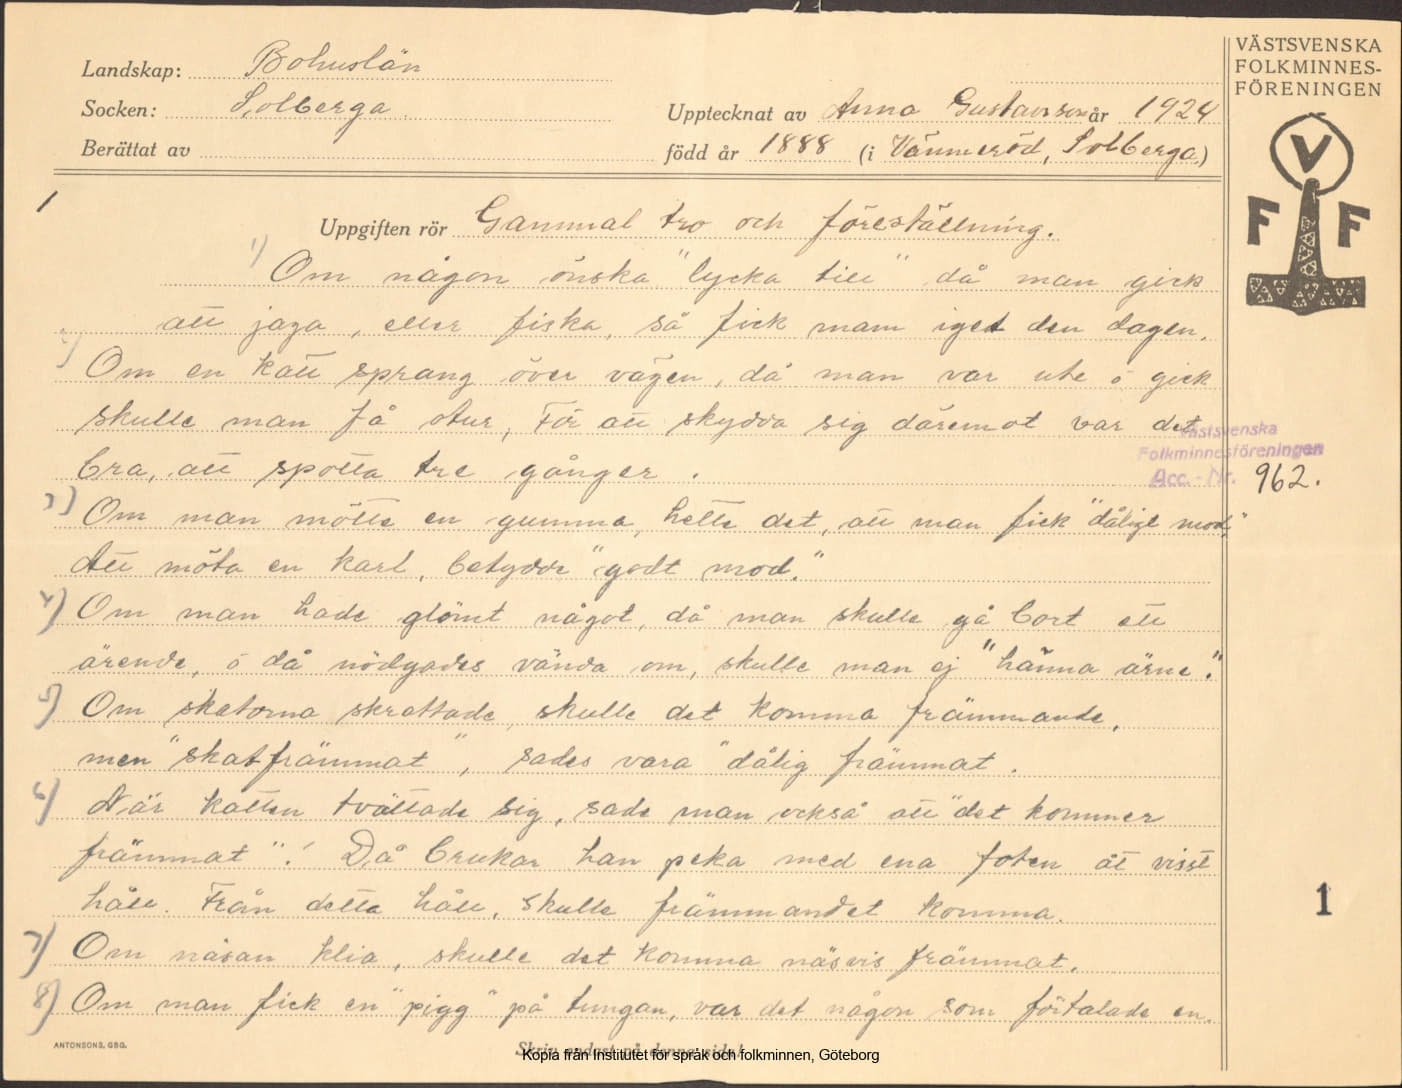 Landskap: Bohuslän
Socken: Solberga
Upptecknat av Anna Gustavsson år 1924
Berättat av
född år 1888 (i Vänneröd, Solberga)
VÄSTSVENSKA
FOLKMINNES-
FÖRENINGEN
V
F F
1
Uppgiften rör Gammal tro och föreställning.
1) Om någon önska "lycka till" då man gick
att jaga, eller fiska, så fick mam iget den dagen.
2) Om en katt sprang över vägen, då man var ute ó gick
skulle man få otur, För att skydda sig däremot var det
bra, att spotta tre gånger.
Västsvenska
Folkminnesföreningen
Acc.-Nr. 962.
3) Om man mötte en gumma, hette det, att man fick "dåligt mod,"
Att möta en karl, betydde "godt mod."
4) Om man hade glömt något, då man skulle gå bort ett
ärende, ó då nödgades vända om, skulle man ej "hänna ärne."
5) Om skatorna skrattade, skulle det komma främmande,
men "skatfrämmat", sades vara "dålig främmat.
6) När katten tvättade sig, sade man också att "det kommer
främmat"! Då brukar han peka med ena foten åt visst
håll. Från detta håll, skulle främmandet komma.
7) Om näsan klia, skulle det komma näsvis främmat.
8) Om man fick en "pigg" på tungan, var det någon som förtalade en.
1
ANTONSONS, GBG.
Skriv endast på denna sida!
Kopia från Institutet för språk och folkminnen, Göteborg